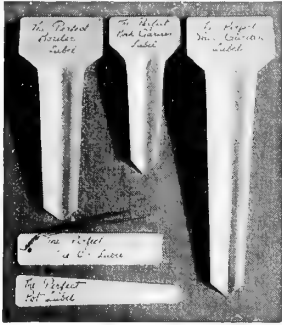 The Perfect
Border
Label
The Perfect
Rock Garden
Label
The Perfect
Garden
Label
The Perfect
Label
The Perfect
Pot Label